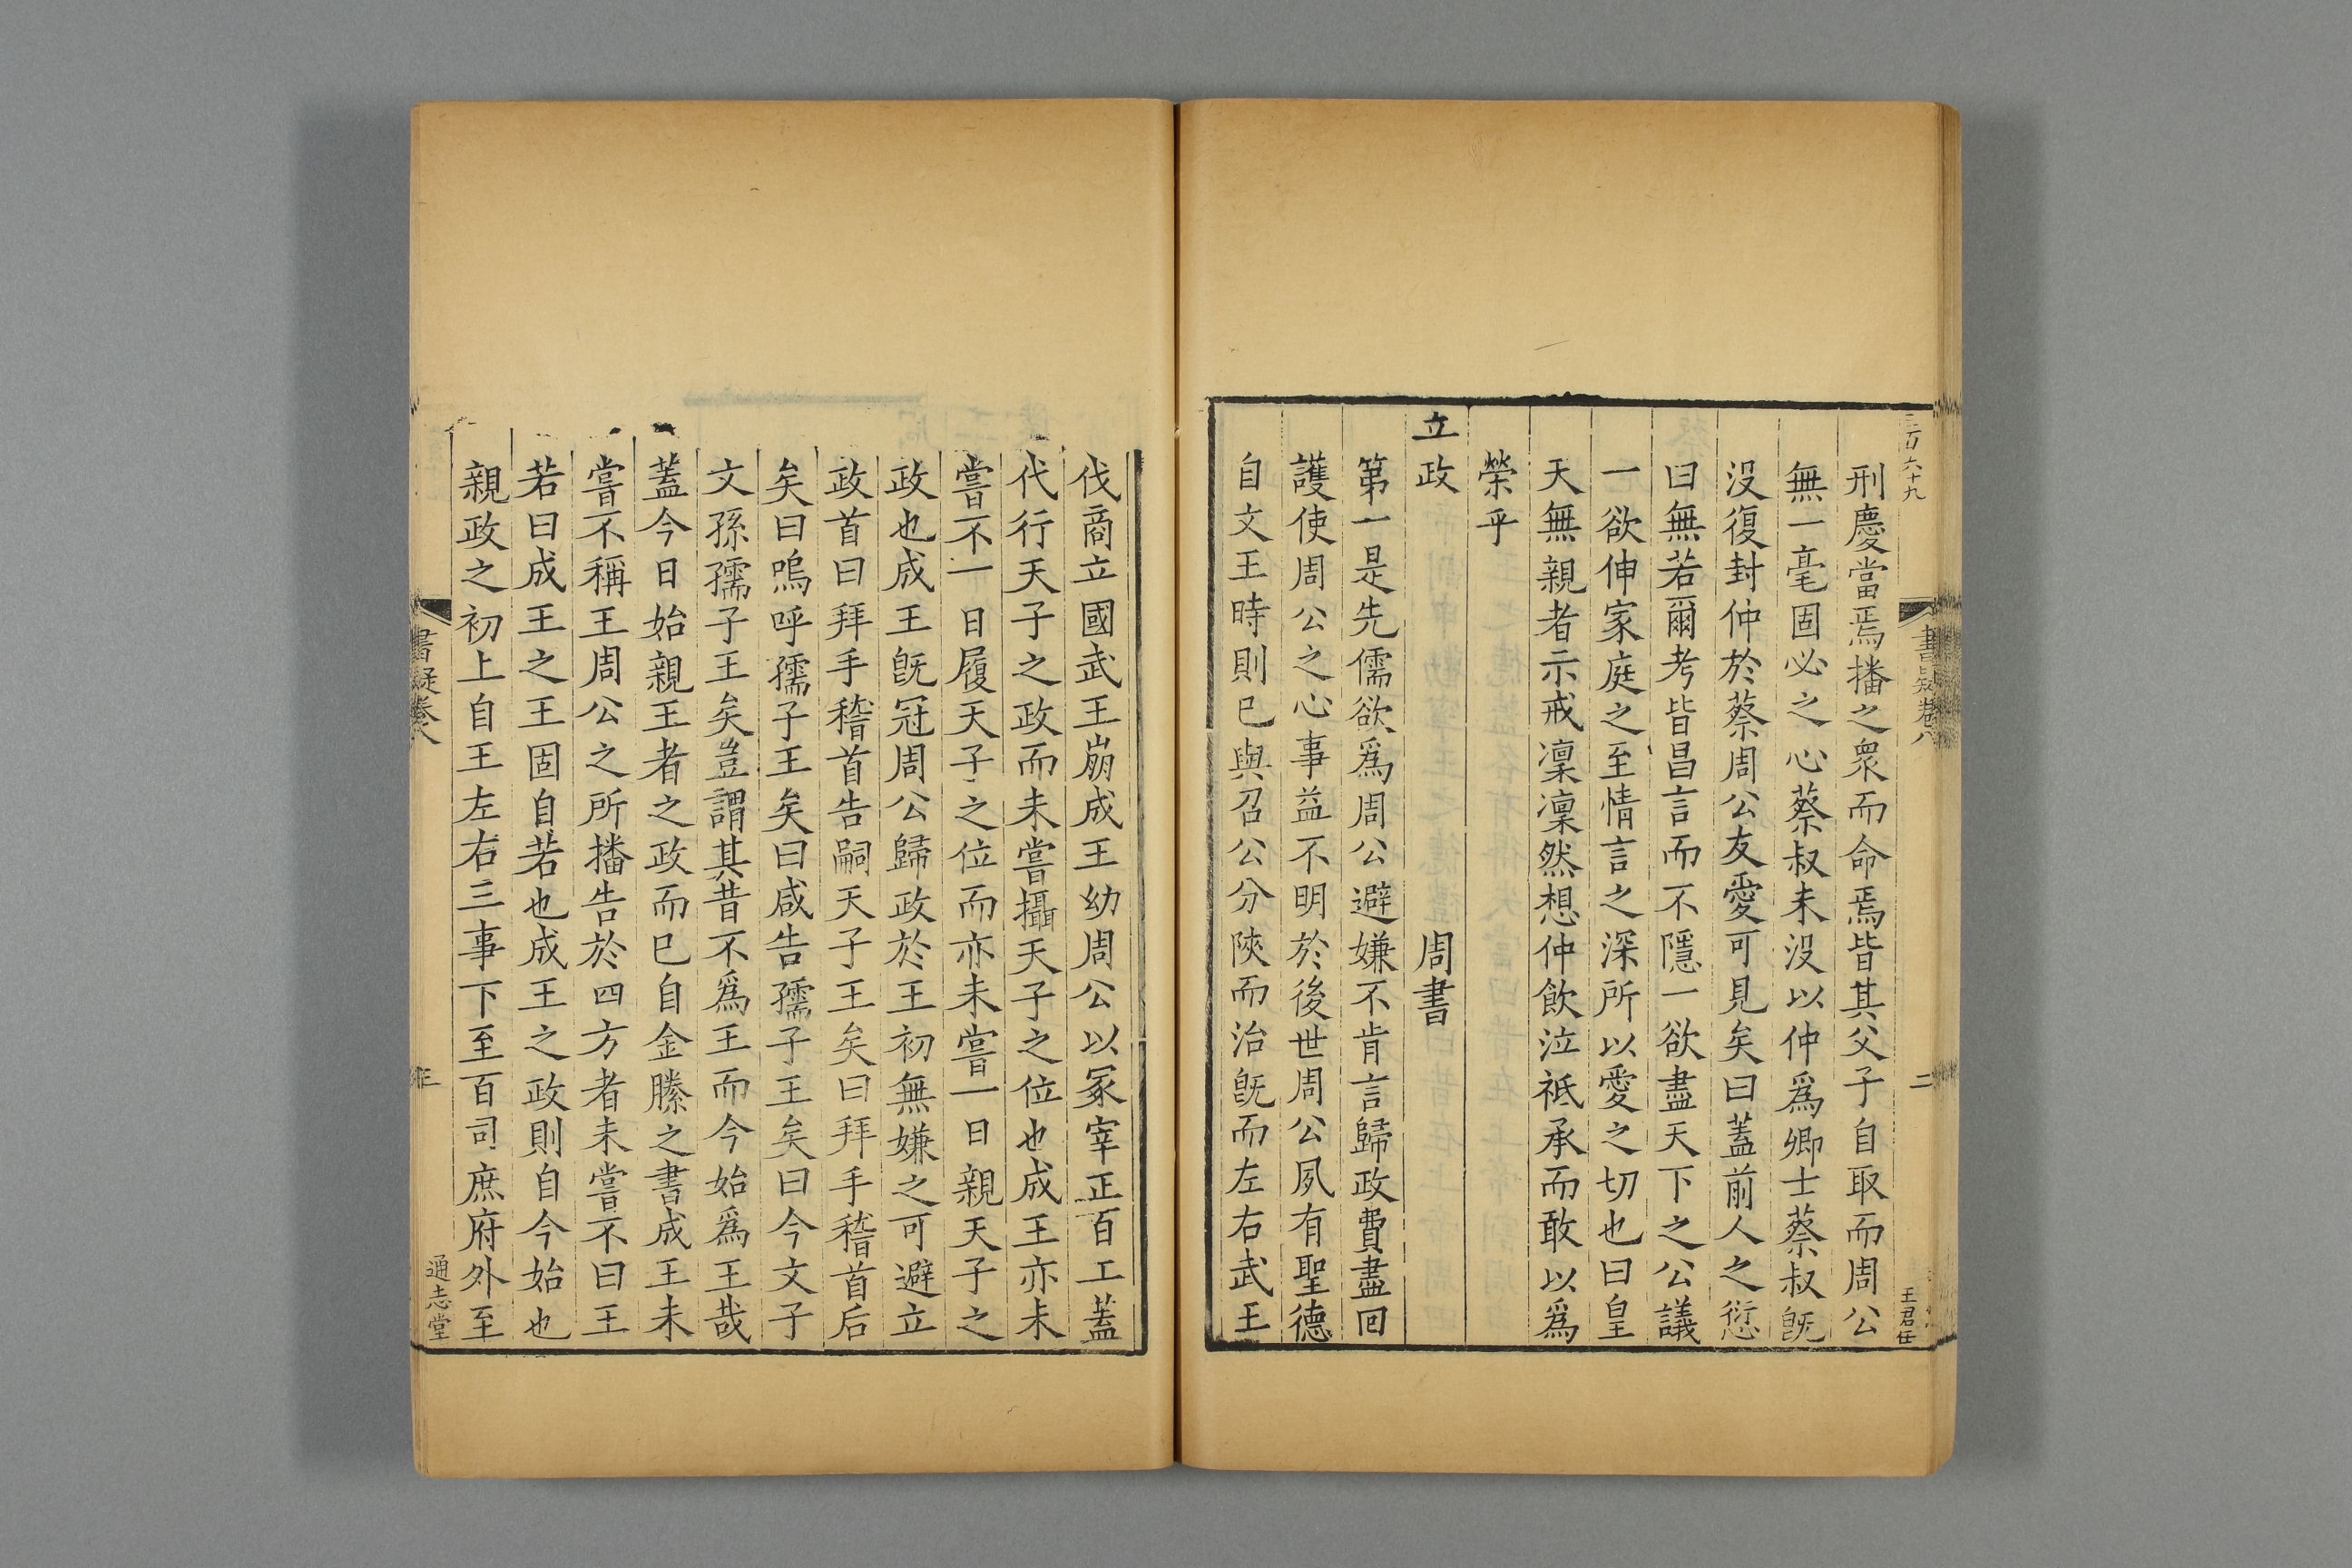 刑慶當焉播之衆而命焉皆其父子自取而周公
無一毫固必之心蔡叔未没以仲爲卿士蔡叔旣
没復封仲於蔡周公友愛可見矣曰蓋前人之愆
曰無若爾考皆昌言而不隱一欲盡天下之公議
一欲伸家庭之至情言之深所以愛之切也曰皇
天無親者示戒凜凜然想仲飲泣祗承而敢以爲
榮乎
立政 周書
第一是先儒欲爲周公避嫌不肯言歸政費盡回
護使周公之心事益不明於後世周公夙有聖德
自文王時則已與召公分陝而治旣而左右武王
伐商立國武王崩成王幼周公以冢宰正百工蓋
代行天子之政而未嘗攝天子之位也成王亦未
嘗不一日履天子之位而亦未嘗一日親天子之
政也成王旣冠周公歸政於王初無嫌之可避立
政首曰拜手稽首告嗣天子王矣曰拜手稽首后
矣曰嗚呼孺子王矣曰咸告孺子王矣曰今文子
文孫孺子王矣豈謂其昔不爲王而今始爲王哉
蓋今日始親王者之政而已自金縢之書成王未
嘗不稱王周公之所播告於四方者未嘗不曰王
若曰成王之王固自若也成王之政則自今始也
親政之初上自王左右三事下至百司庶府外至
書疑卷八
二
王君任
書疑卷八
通志堂